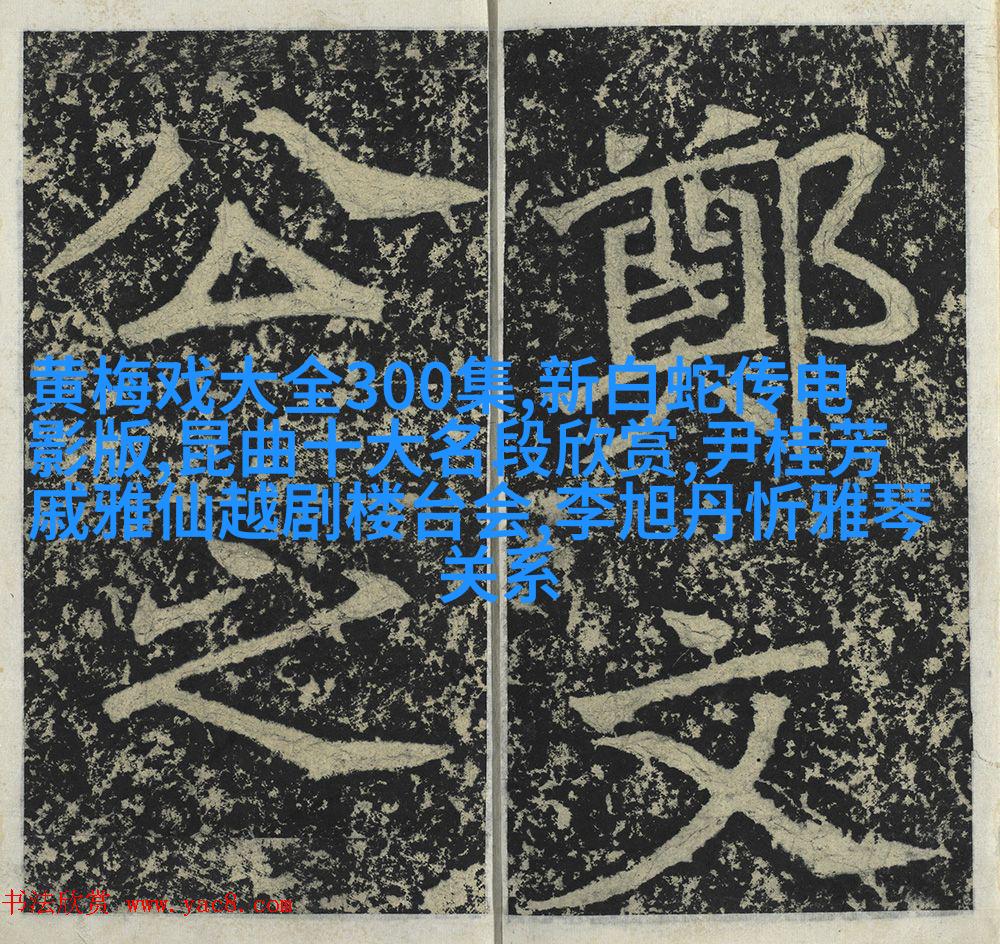 鄭文
公之
黄梅戏大全300集,新白蛇传电
影版,昆曲十大名段欣赏,尹桂芳
戚雅仙越剧楼台会,李旭丹忻雅琴
关系
书法欣赏 www.yac8.com